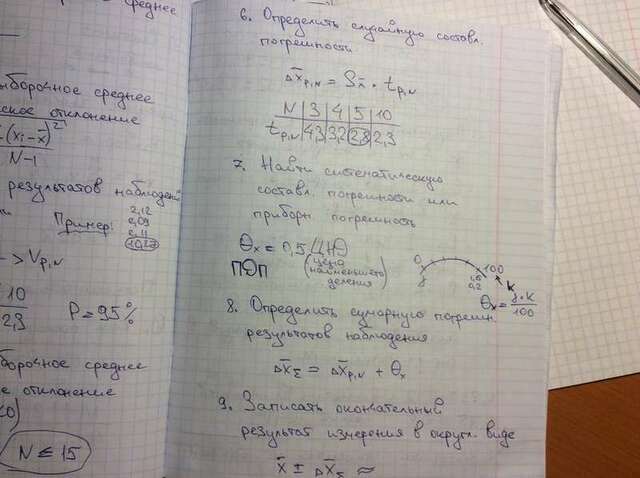 среднее
выборочное среднее
ское отклонение
(xᵢ - x̄)²
N-1
результатов наблюдени
Пример:
2,12
2,11
> V_P,N
10
2,3
P = 95%
борочное среднее
ое отклонение
N ≤ 15
6. Определить случайную составл.
погрешности
Δx̄_P,N = S_x̄ · t_P,N
N | 3 | 4 | 5 | 10
t_P,N | 4,3 | 3,2 | 2,8 | 2,3
7. Найти систематическую
составл. погрешности или
приборн. погрешность
θₓ = 0,5 ЦНД
(цена наименьшего деления)
ПДП
0
100
K
γ
θₓ = γ·K / 100
8. Определить сумарную погрешн.
результатов наблюдения
Δx̄_Σ = Δx̄_P,N + θₓ
9. Записать окончательный
результат измерения в округл. виде
x̄ ± Δx̄_Σ ≈